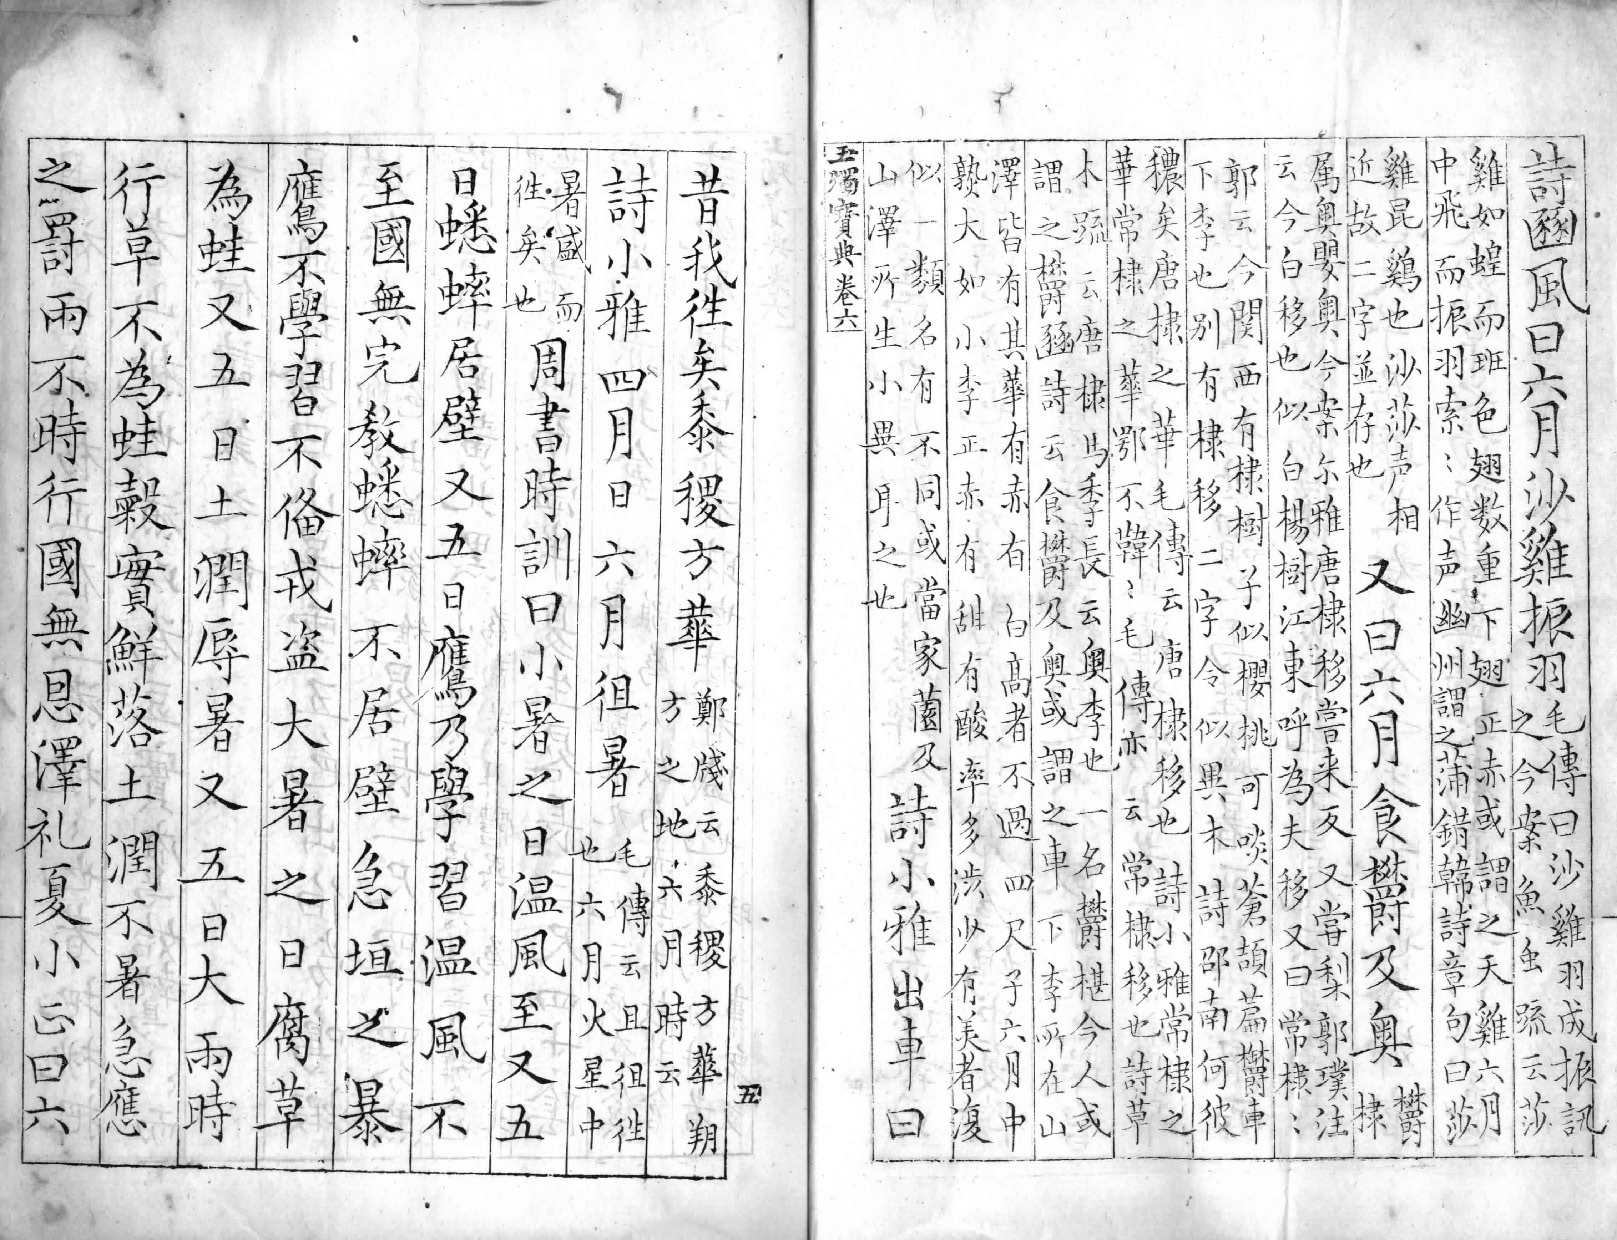 詩豳風曰六月沙雞振羽毛傳曰沙雞羽成振訊
之今案魚虫疏云莎
雞如蝗而班色翅数重下翅正赤或謂之天雞六月
中飛而振羽索〻作声幽州謂之蒲錯韓詩章句曰莎
雞昆鷄也沙莎声相
近故二字並存也
又曰六月食欝及奥欝
棣
属奥蘡奥今案尒雅唐棣移嘗来反又嘗梨郭璞注
云今白移也似白楊樹江東呼為夫移又曰常棣〻
郭云今関西有棣樹子似櫻桃可啖蒼頡篇欝車
下李也別有棣移二字令似異木詩邵南何彼
穠矣唐棣之華毛傳云唐棣移也詩小雅常棣之
華常棣之華鄂不韡〻毛傳亦云常棣移也詩草
木疏云唐棣馬季長云奥李也一名欝棋今人或
謂之欝豳詩云食欝及奥或謂之車下李所在山
澤皆有其華有赤有白髙者不過四尺子六月中
熟大如小李正赤有甜有酸率多渋少有美者復
似一類名有不同或當家薗及
山澤所生小異耳之也
詩小雅出車曰
玉燭寳典卷六
五
昔我徃矣黍稷方華鄭牋云黍稷方華朔
方之地六月時云
詩小雅四月曰六月徂暑毛傳云且徂徃
也六月火星中
暑盛而
徃矣也
周書時訓曰小暑之日温風至又五
日蟋蟀居壁又五日鷹乃學習温風不
至國無完教蟋蟀不居壁急垣之暴
鷹不學習不俻戎盗大暑之日腐草
為蛙又五日土潤辱暑又五日大雨時
行草不為蛙穀實鮮落土潤不暑急應
之罰雨不時行國無恩澤礼夏小正曰六